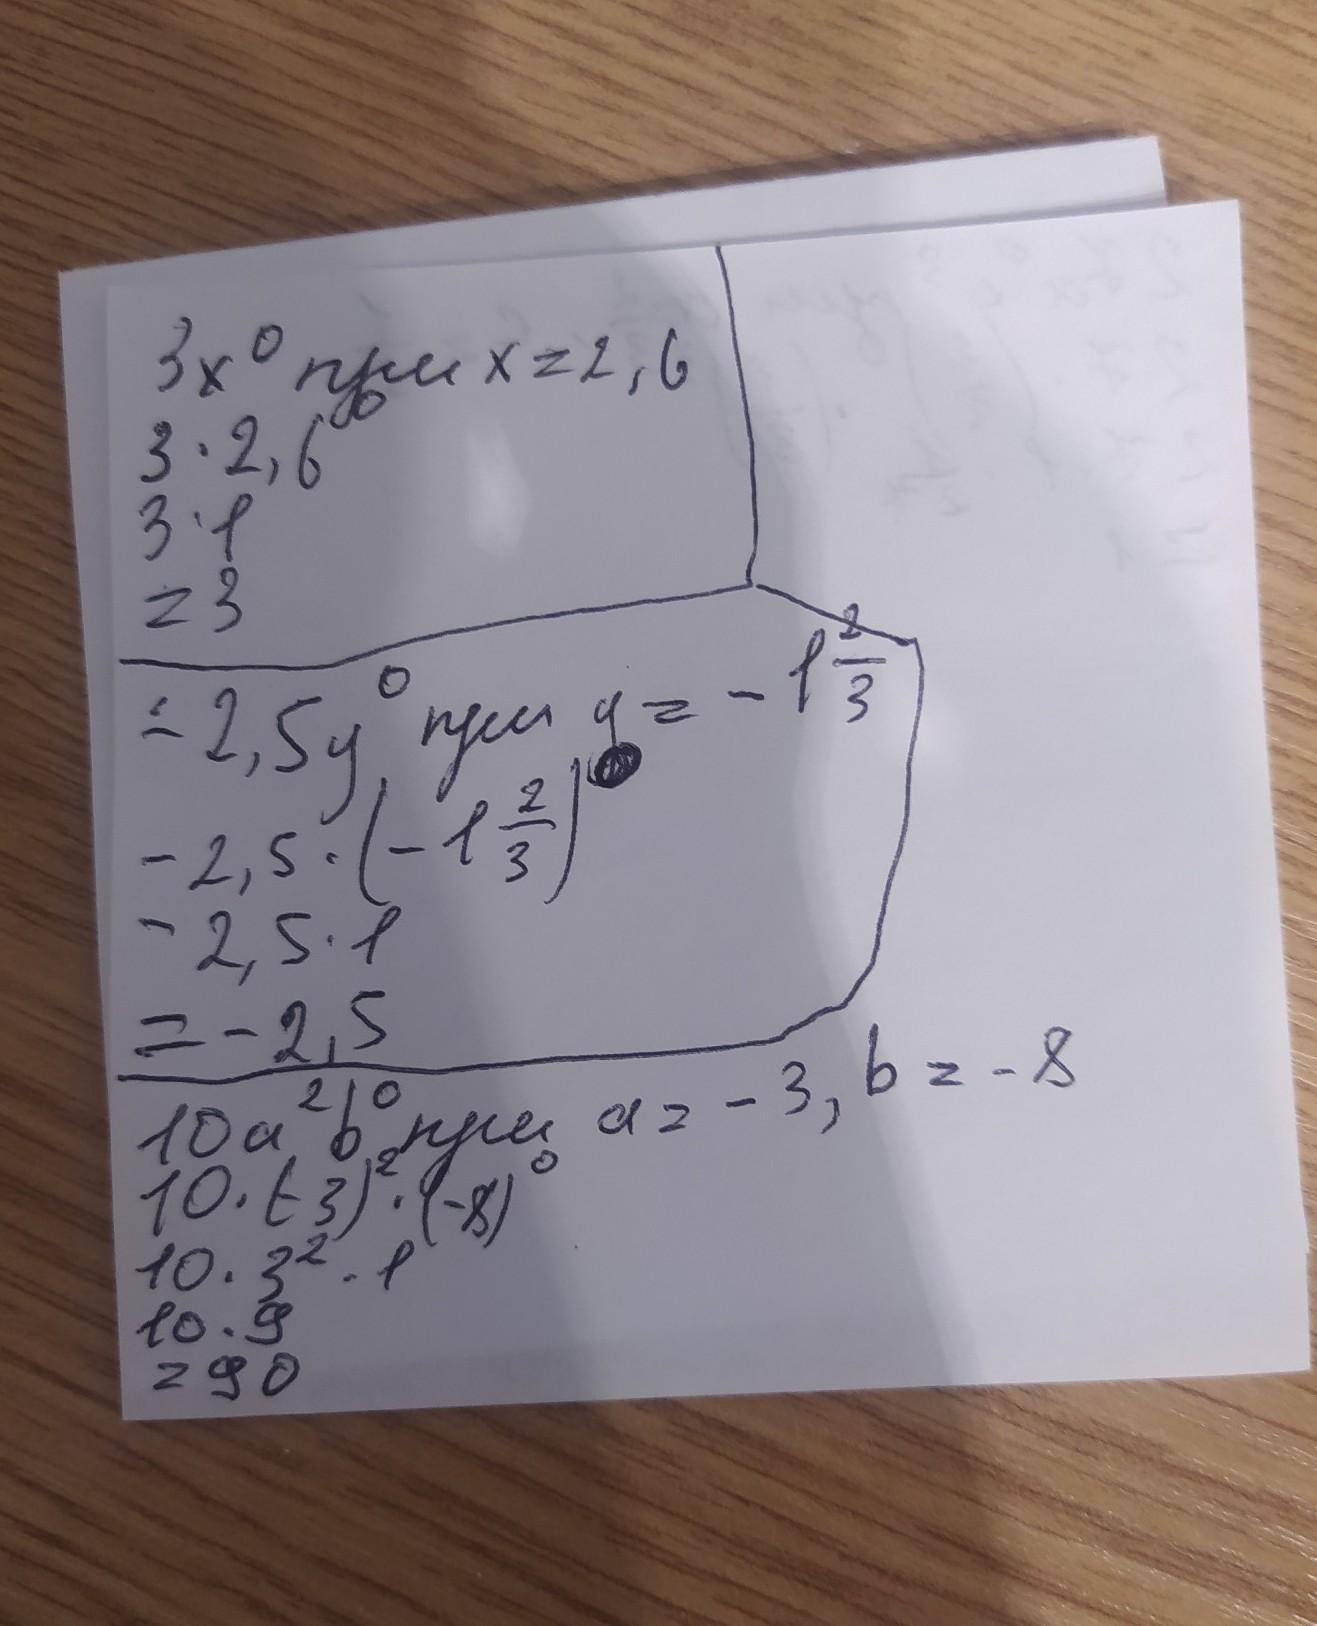 3x⁰ при x=2,6
3·2,6⁰
3·1
=3
-2,5y⁰ при y=-1 2/3
-2,5·(-1 2/3)
-2,5·1
=-2,5
10a²b⁰ при a=-3, b=-8
10·(-3)²·(-8)⁰
10·3²·1
10·9
=90